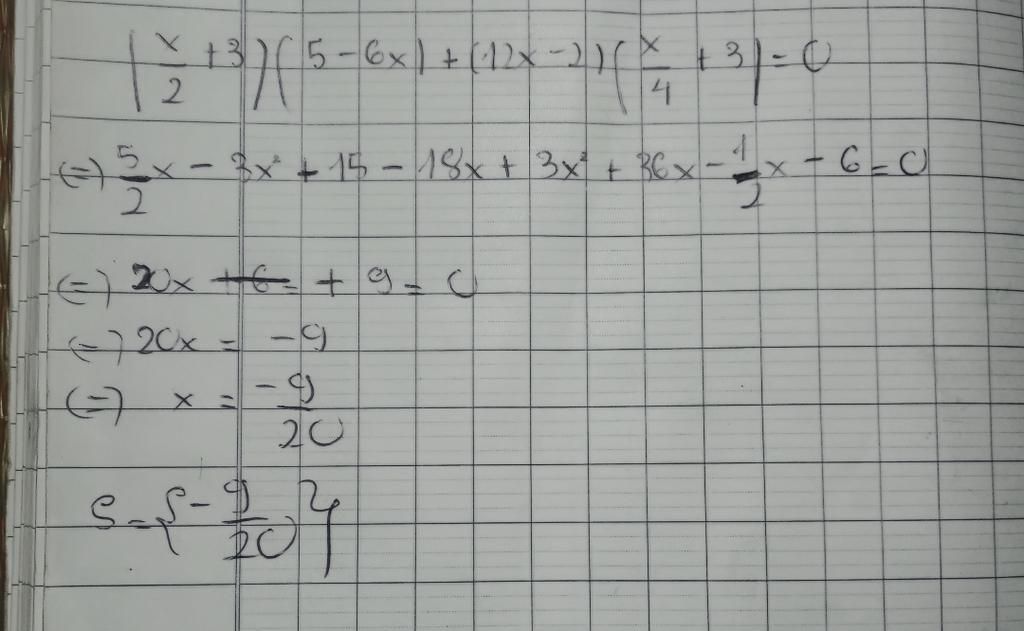 (x/2 + 3)(5 - 6x) + (12x - 2)(x/4 + 3) = 0
(=) 5/2 x - 3x² + 15 - 18x + 3x² + 36x - 1/2 x - 6 = 0
(=) 20x + 9 = 0
(=) 20x = -9
(=) x = -9/20
S = {-9/20}